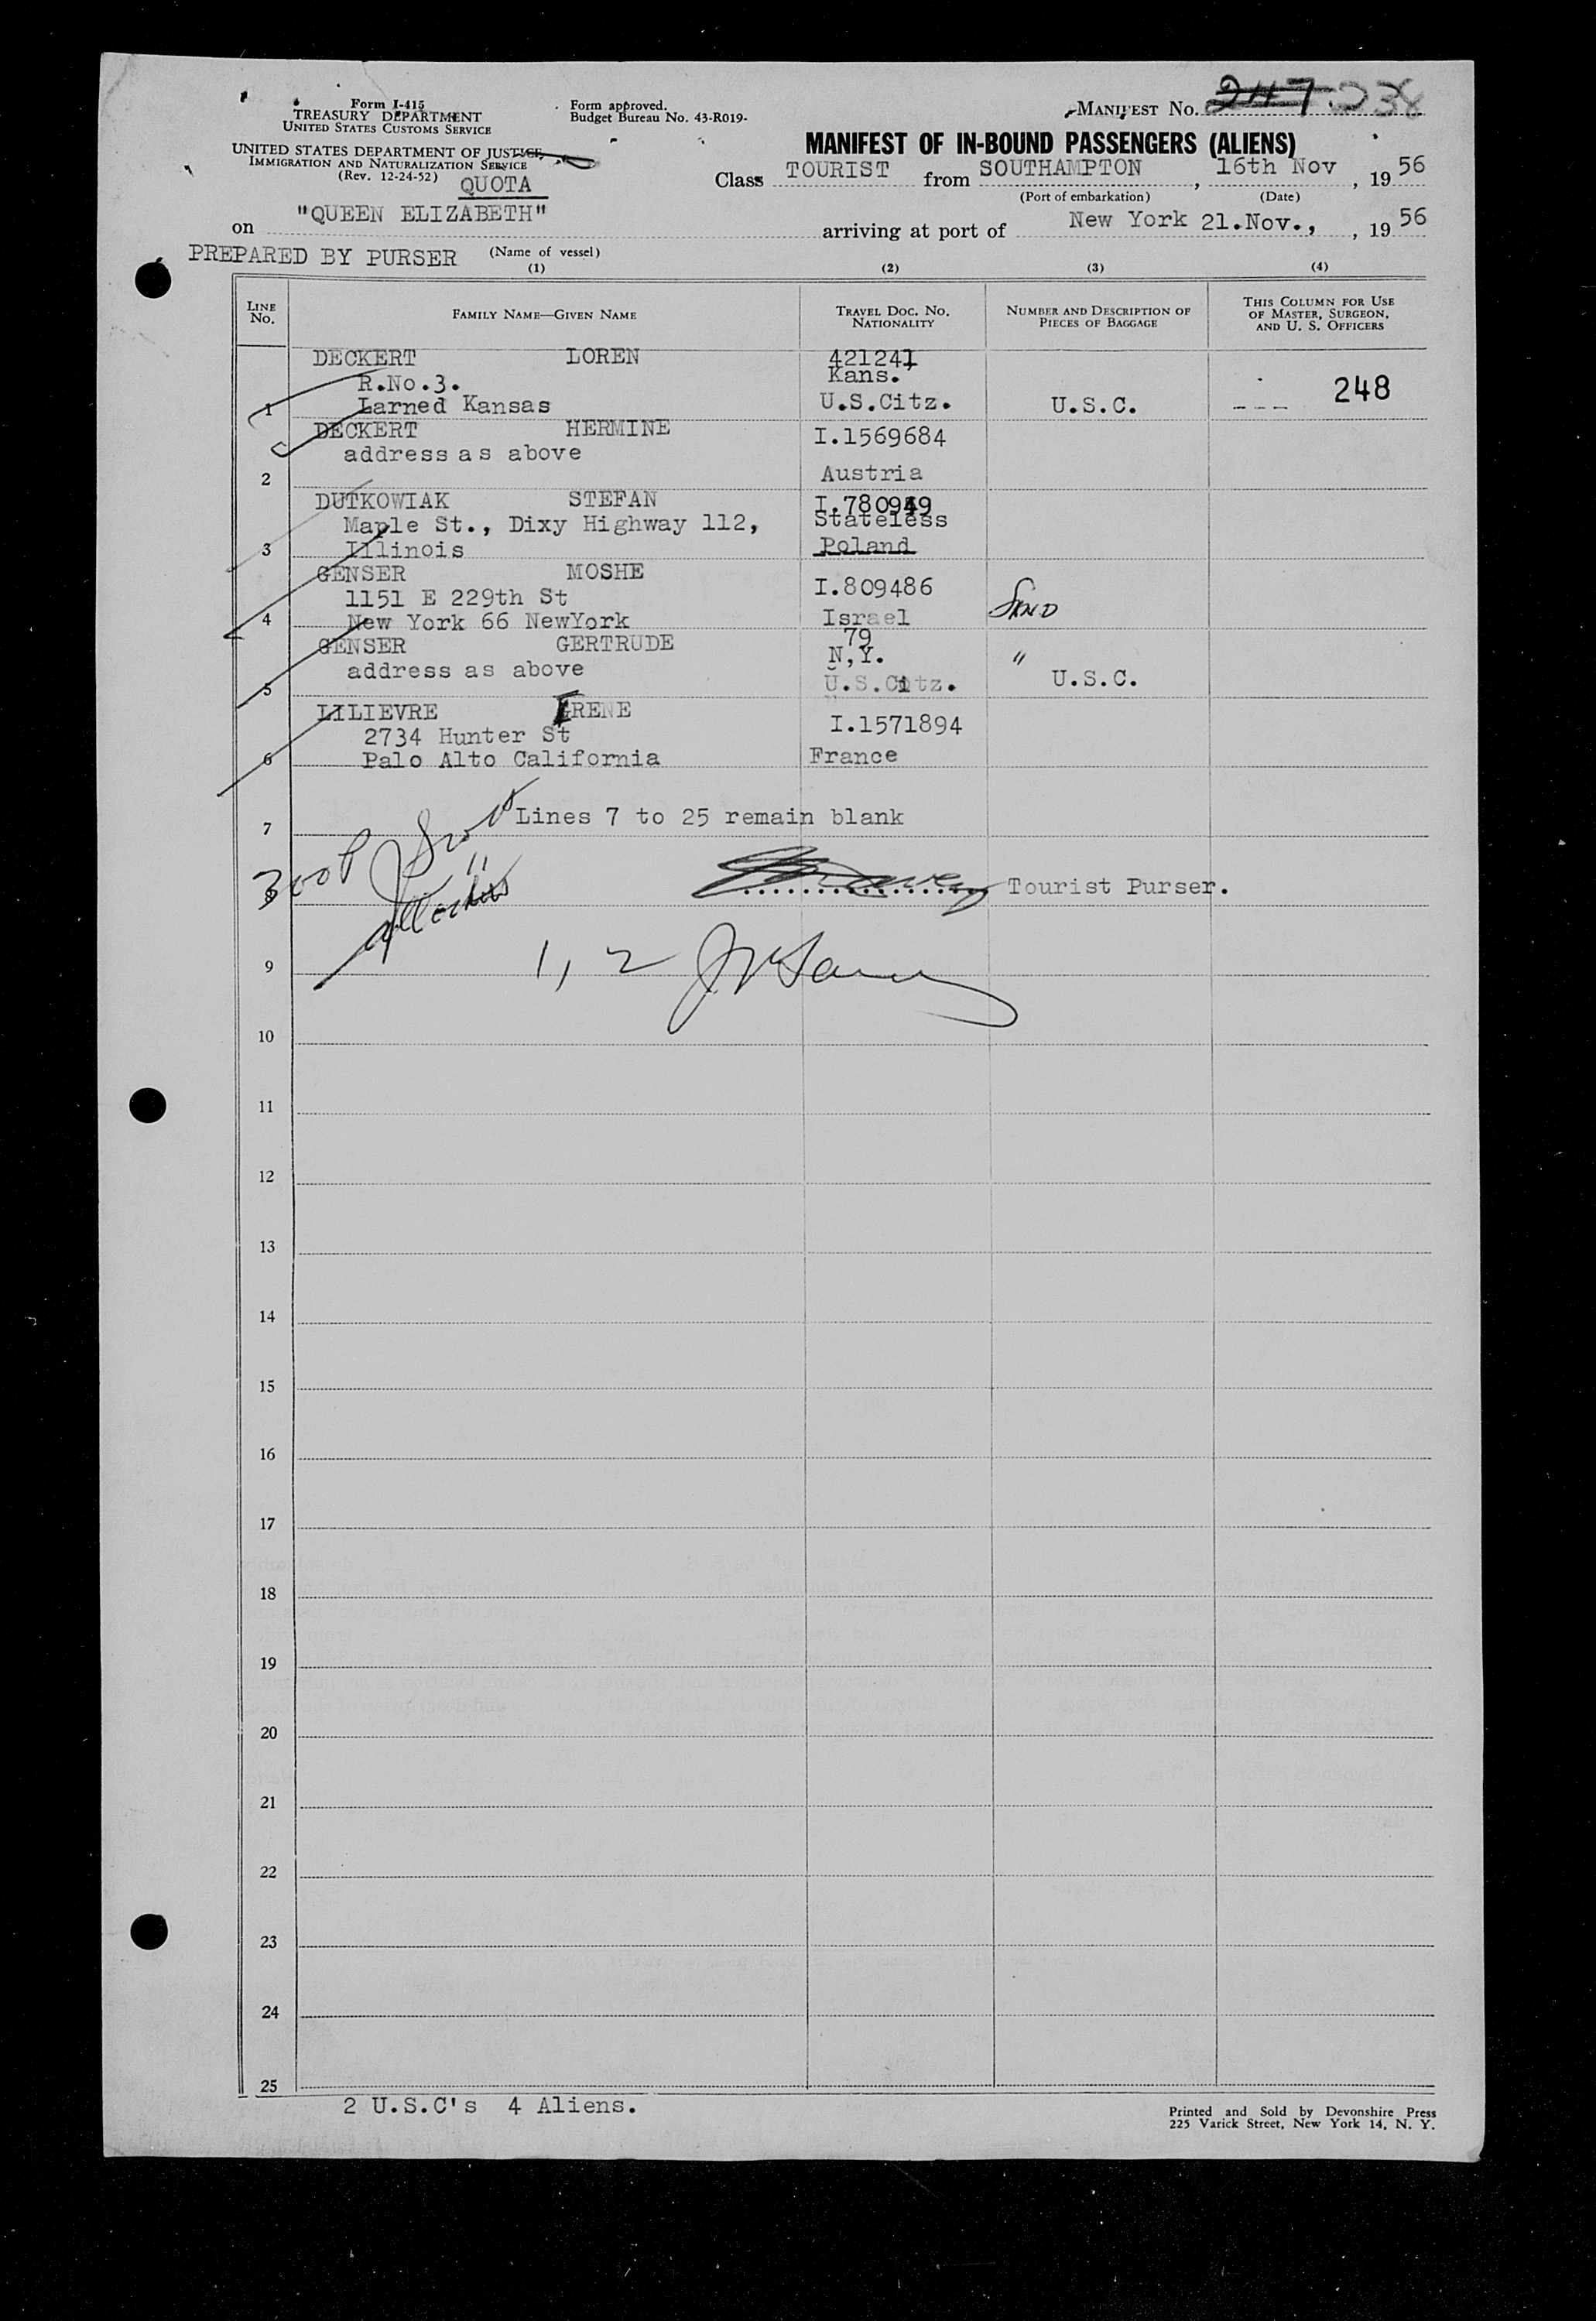 Form I-415
TREASURY DEPARTMENT
UNITED STATES CUSTOMS SERVICE
UNITED STATES DEPARTMENT OF JUSTICE
IMMIGRATION AND NATURALIZATION SERVICE
(Rev. 12-24-52)
QUOTA
Form approved.
Budget Bureau No. 43-R019-
MANIFEST No. 247 238
MANIFEST OF IN-BOUND PASSENGERS (ALIENS)
Class TOURIST from SOUTHAMPTON, 16th Nov, 19 56
(Port of embarkation) (Date)
on "QUEEN ELIZABETH" arriving at port of New York 21.Nov., , 19 56
PREPARED BY PURSER (Name of vessel)
(1) (2) (3) (4)
LINE No. FAMILY NAME—GIVEN NAME TRAVEL DOC. No. NATIONALITY NUMBER AND DESCRIPTION OF PIECES OF BAGGAGE THIS COLUMN FOR USE OF MASTER, SURGEON, AND U. S. OFFICERS
DECKERT LOREN 421241
R.No.3. Kans.
1 Larned Kansas U.S.Citz. U.S.C. --- 248
DECKERT HERMINE I.1569684
address as above
2 Austria
DUTKOWIAK STEFAN I.780949
Maple St., Dixy Highway 112, Stateless
3 Illinois Poland
GENSER MOSHE I.809486
1151 E 229th St
4 New York 66 NewYork Israel
GENSER GERTRUDE 79
address as above N,Y. "
5 U.S.Citz. U.S.C.
LILIEVRE IRENE I.1571894
2734 Hunter St
6 Palo Alto California France
7 Lines 7 to 25 remain blank
8 Tourist Purser.
9 1, 2
10
11
12
13
14
15
16
17
18
19
20
21
22
23
24
25
2 U.S.C's 4 Aliens.
Printed and Sold by Devonshire Press
225 Varick Street, New York 14, N. Y.